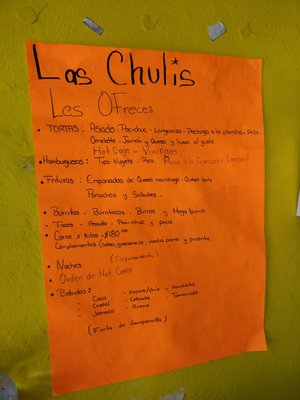 Las Chulis
Les OFrece:
• TORTAS: Asado. Poc-chuc - Longaniza - Pechuga a la plancha - Pollo -
Omelette - Jamón y Queso y huevo al gusto.
Hot Dogs - Vikingos
• Hamburguesas: Tipo Nugets - Res. Papas a la Francesa (orden)
• Frituras: Empanadas de Queso manchego - Queso bola
Panuchos y Salbutes..
• Burritas - Burritacos - Burros y Mega burro
• Tacos - Asado - Poc-chuc y pollo
• Carne x Kilos - $180.00
Complementos (salsa, guacamole, media carne y picante.
• Nachos
• Orden de Hot Cakes
• Bebidas:
- Coca - Pepino/chía - Horchata
- Cristal - Cebada - Tamarindo
- Jamaica - Avena
(Fruta de temporada)